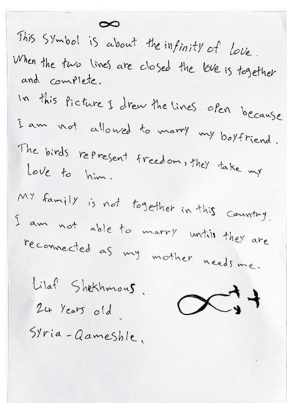 This symbol is about the infinity of love.
When the two lines are closed the love is together
and complete.
In this picture I drew the lines open because
I am not allowed to marry my boyfriend.
The birds represent freedom, they take my
love to him.
My family is not together in this country.
I am not able to marry until they are
reconnected as my mother needs me.
Lilaf Shekhmous.
24 years old.
Syria - Qameshle.